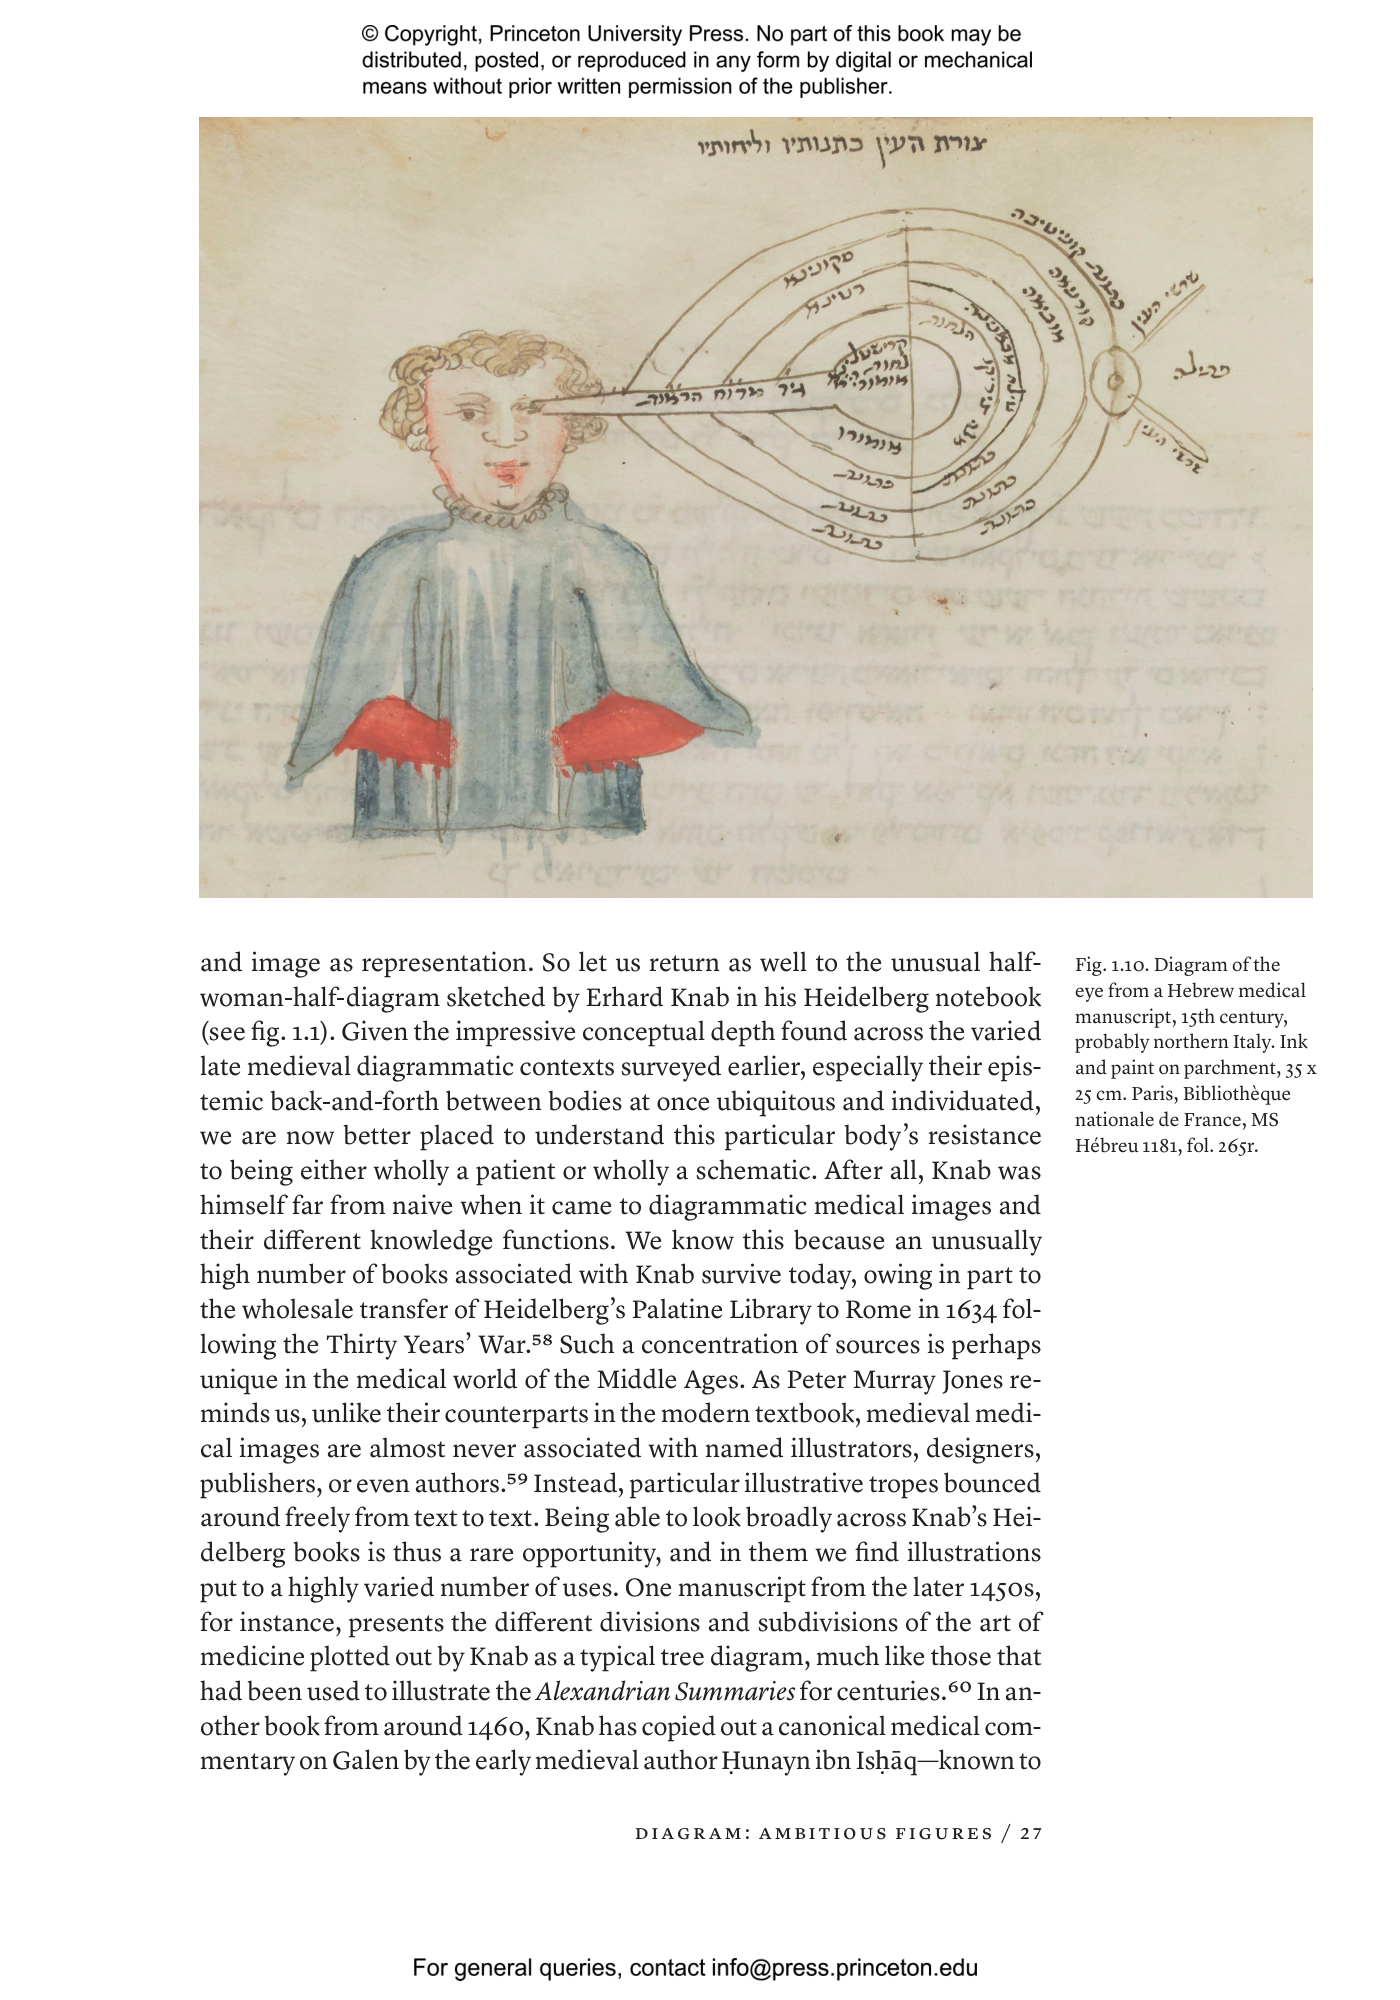 © Copyright, Princeton University Press. No part of this book may be
distributed, posted, or reproduced in any form by digital or mechanical
means without prior written permission of the publisher.
צורת העין כתנותיו וליחותיו
כתונת קונ׳טיבה
קורניאה
סקונינא
רטינא
שרשי העין
גיד מרוח הראות
כתונת
כתונת
כתונת
כתונת
כתונת
כתונת
שרשי העין
and image as representation. So let us return as well to the unusual half-
woman-half-diagram sketched by Erhard Knab in his Heidelberg notebook
(see fig. 1.1). Given the impressive conceptual depth found across the varied
late medieval diagrammatic contexts surveyed earlier, especially their epis-
temic back-and-forth between bodies at once ubiquitous and individuated,
we are now better placed to understand this particular body’s resistance
to being either wholly a patient or wholly a schematic. After all, Knab was
himself far from naive when it came to diagrammatic medical images and
their different knowledge functions. We know this because an unusually
high number of books associated with Knab survive today, owing in part to
the wholesale transfer of Heidelberg’s Palatine Library to Rome in 1634 fol-
lowing the Thirty Years’ War.⁵⁸ Such a concentration of sources is perhaps
unique in the medical world of the Middle Ages. As Peter Murray Jones re-
minds us, unlike their counterparts in the modern textbook, medieval medi-
cal images are almost never associated with named illustrators, designers,
publishers, or even authors.⁵⁹ Instead, particular illustrative tropes bounced
around freely from text to text. Being able to look broadly across Knab’s Hei-
delberg books is thus a rare opportunity, and in them we find illustrations
put to a highly varied number of uses. One manuscript from the later 1450s,
for instance, presents the different divisions and subdivisions of the art of
medicine plotted out by Knab as a typical tree diagram, much like those that
had been used to illustrate the Alexandrian Summaries for centuries.⁶⁰ In an-
other book from around 1460, Knab has copied out a canonical medical com-
mentary on Galen by the early medieval author Ḥunayn ibn Isḥāq—known to
Fig. 1.10. Diagram of the
eye from a Hebrew medical
manuscript, 15th century,
probably northern Italy. Ink
and paint on parchment, 35 x
25 cm. Paris, Bibliothèque
nationale de France, MS
Hébreu 1181, fol. 265r.
DIAGRAM: AMBITIOUS FIGURES / 27
For general queries, contact info@press.princeton.edu